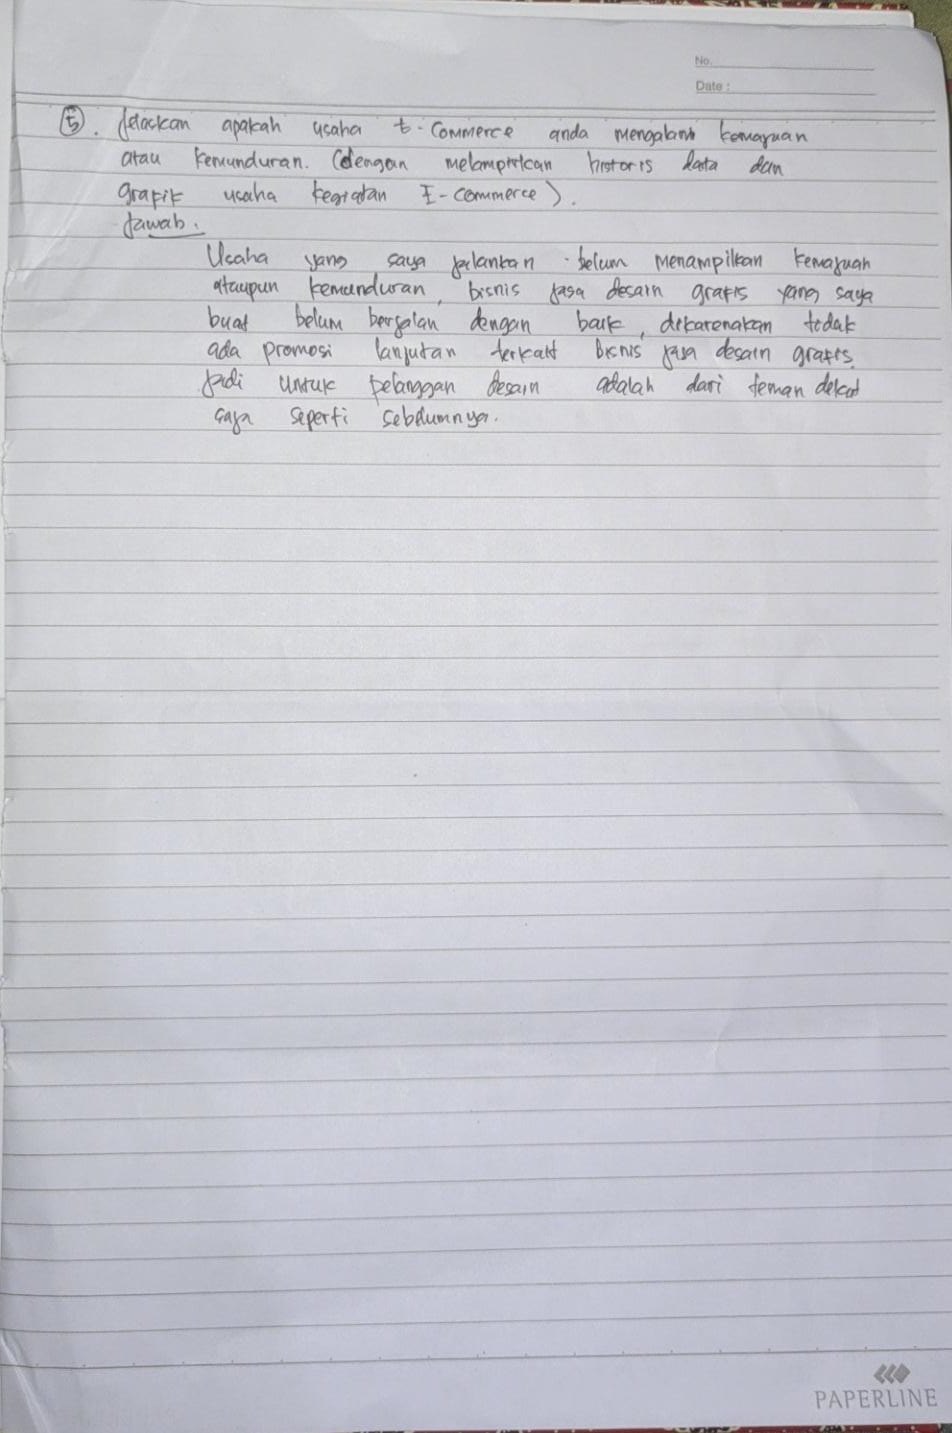 No.
Date :
5. Jelaskan apakah usaha E-Commerce anda mengalami kemajuan
atau kemunduran. (dengan melampirkan historis data dan
grafik usaha kegiatan E-commerce).
Jawab.
Usaha yang saya jalankan belum menampilkan kemajuan
ataupun kemunduran, bisnis jasa desain grafis yang saya
buat belum berjalan dengan baik, dikarenakan tidak
ada promosi lanjutan terkait bisnis jasa desain grafis.
Jadi untuk pelanggan desain adalah dari teman dekat
saya seperti sebelumnya.
PAPERLINE